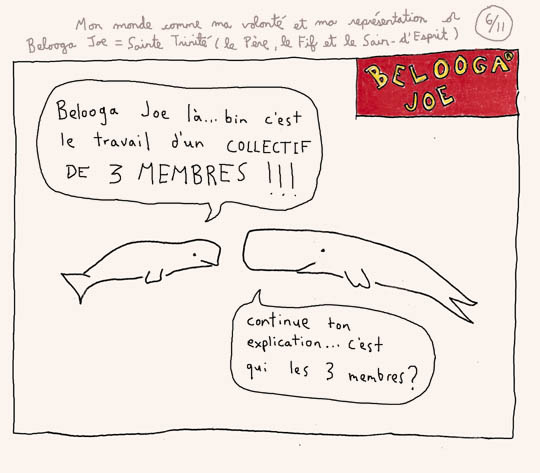 Mon monde comme ma volonté et ma représentation or
Belooga Joe = Sainte Trinité (le Père, le Fif et le Sain-d'Esprit)
6/11
BELOOGA
JOE
Belooga Joe là... bin c'est
le travail d'un COLLECTIF
DE 3 MEMBRES !!!
continue ton
explication... c'est
qui les 3 membres?